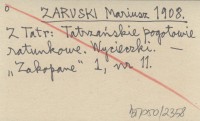 ZARUSKI Mariusz 1908.
Z Tatr: Tatrzańskie pogotowie
ratunkowe. Wycieczki. —
„Zakopane" 1, nr 11.